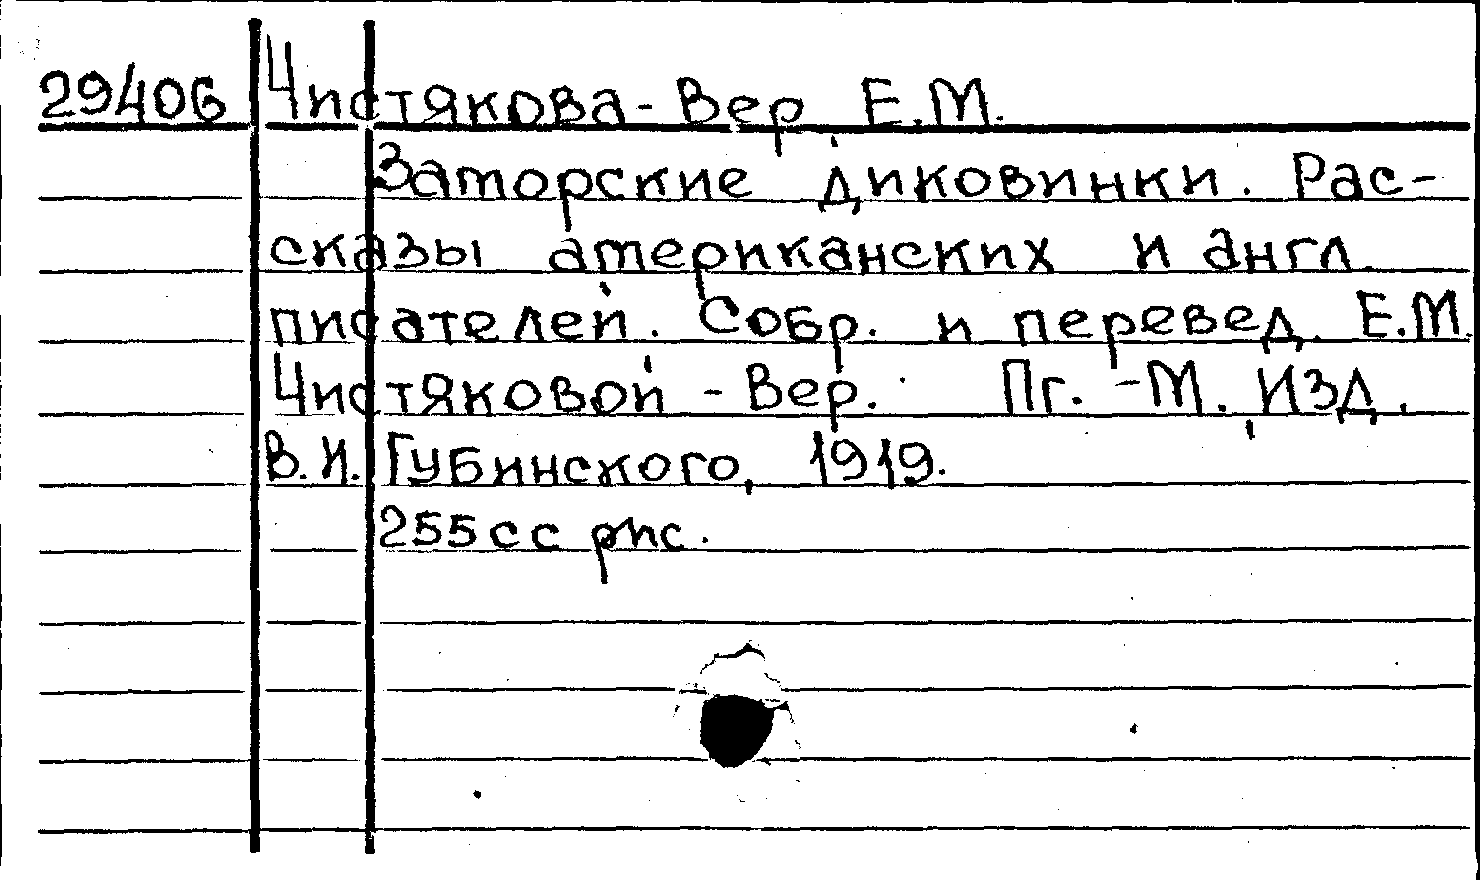 29406 Чистякова-Вер Е.М.
Заморские диковинки. Рас-
сказы американских и англ.
писателей. Собр. и перевед. Е.М.
Чистяковой-Вер. Пг.-М. Изд.
В.И. Губинского, 1919.
255сс рис.